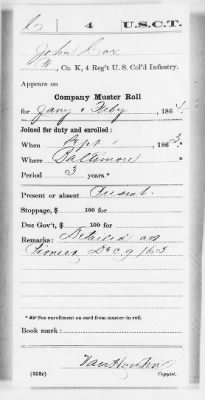 C 4 U.S.C.T.
John Cox
, Co. K, 4 Reg't U. S. Col'd Infantry.
Appears on
Company Muster Roll
for Jany & Feby, 1864
Joined for duty and enrolled:
When Sept , 1863 *
Where Baltimore *
Period 3 years.*
Present or absent Present
Stoppage, $ 100 for
Due Gov't, $ 100 for
Remarks: Detailed as
Pioneer, Dec 9 1863
* See enrollment on card from muster-in roll.
Book mark:
(358c) Copyist.